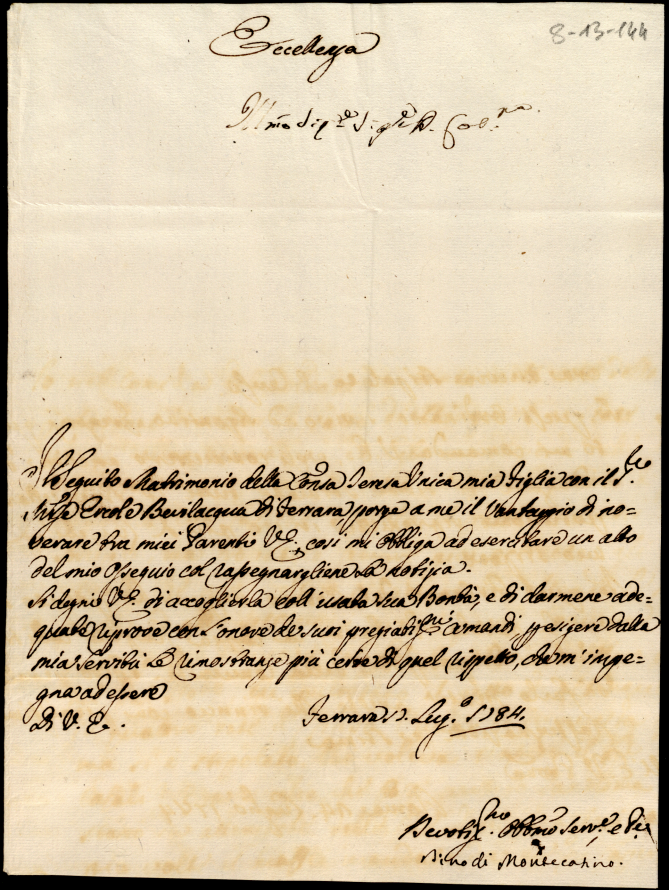 8-13-144
Eccellenza
Il Seguito Matrimonio della Con:sa Teresa Unica mia Figlia con il S.re
Ercole Bevilacqua di Ferrara, porge a me il Vantaggio di no=
verare tra miei Parenti V.E., così mi obbliga ad esercitare un atto
del mio Ossequio col rassegnargliene la notizia.
Si degni V.E. di accoglierla coll'usata sua Bontà, e di darmene ade=
quate riprove con l'onore de suoi pregiatis.mi comandi p esigere dalla
mia servitù le rimostranze più certe di quel rispetto, che m'impe=
gna ad essere
Di V.E.
Ferrara Lug.o 1784.
Devotis.mo Obb.mo Serv.e, e
di Montecatino.